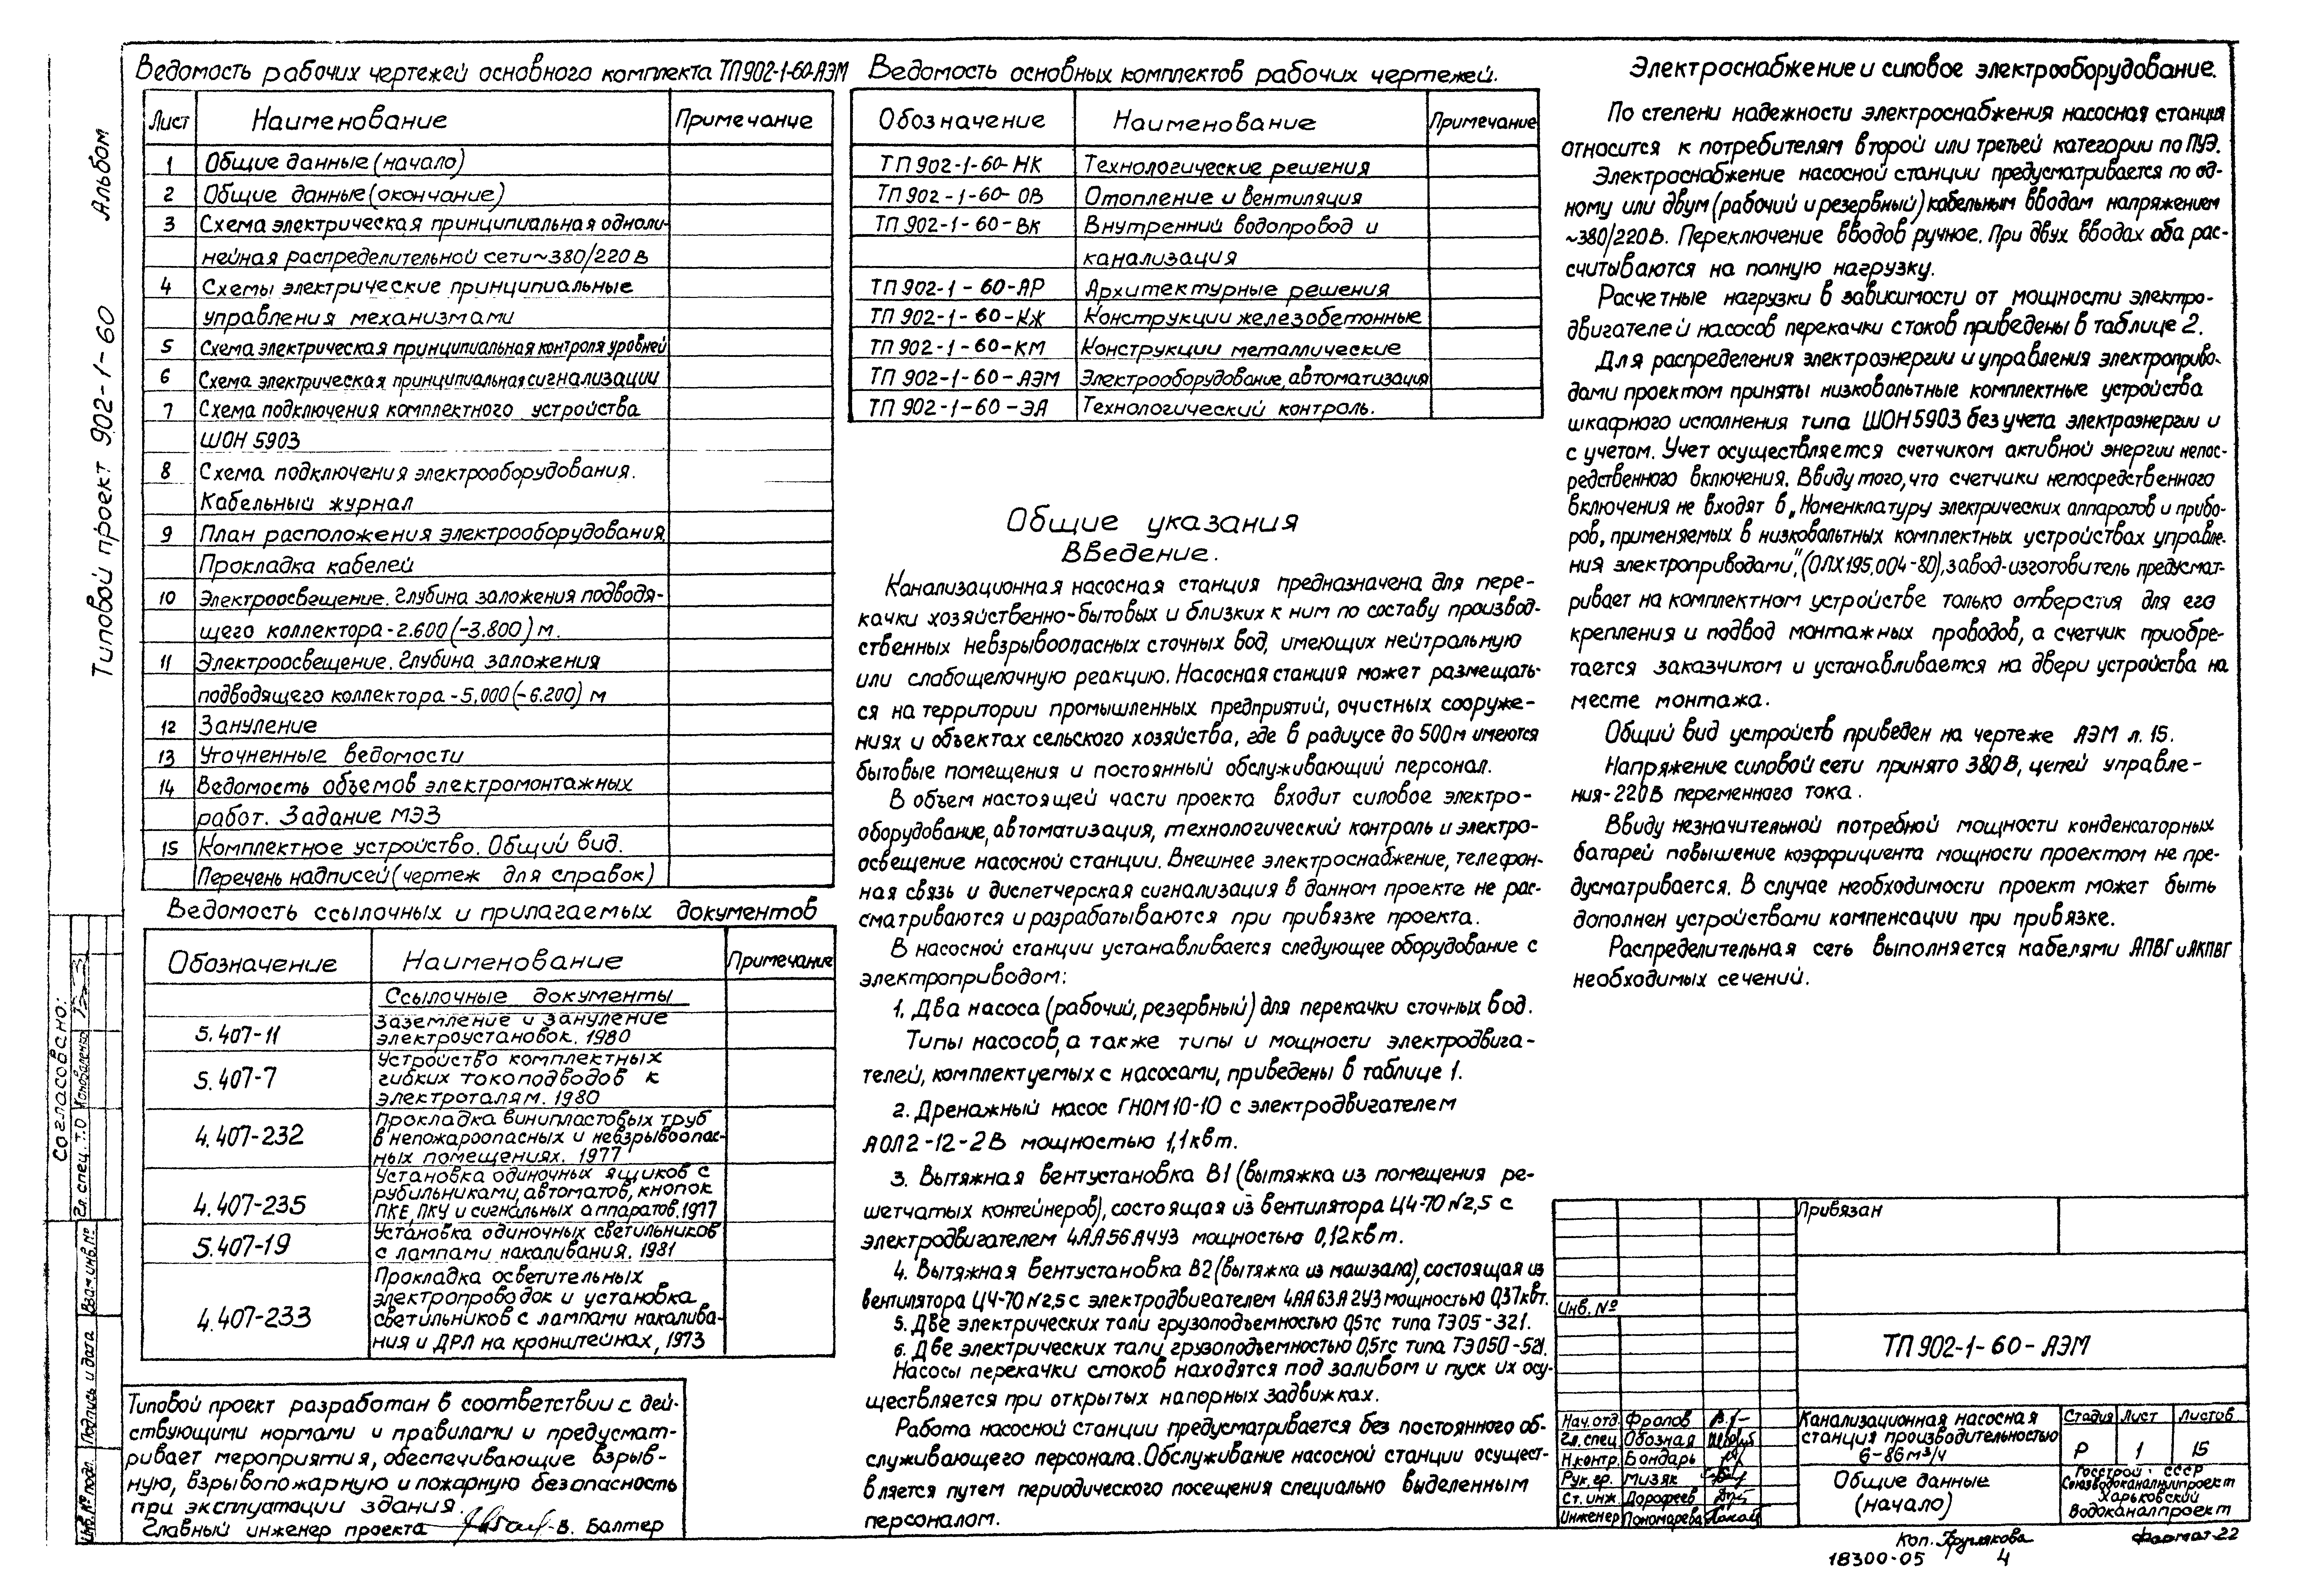 Альбом
Типовой проект 902-1-60
Ведомость рабочих чертежей основного комплекта ТП902-1-60-АЭМ
Лист Наименование Примечание
1 Общие данные (начало)
2 Общие данные (окончание)
3 Схема электрическая принципиальная одноли-
нейная распределительной сети ~380/220В
4 Схемы электрические принципиальные
управления механизмами
5 Схема электрическая принципиальная контроля уровней
6 Схема электрическая принципиальная сигнализации
7 Схема подключения комплектного устройства
ШОН 5903
8 Схема подключения электрооборудования.
Кабельный журнал
9 План расположения электрооборудования.
Прокладка кабелей
10 Электроосвещение. Глубина заложения подводя-
щего коллектора -2.600 (-3.800) м.
11 Электроосвещение. Глубина заложения
подводящего коллектора -5,000 (-6.200) м
12 Зануление
13 Уточненные ведомости
14 Ведомость объемов электромонтажных
работ. Задание МЭЗ
15 Комплектное устройство. Общий вид.
Перечень надписей (чертеж для справок)
Ведомость ссылочных и прилагаемых документов
Обозначение Наименование Примечание
Ссылочные документы
5.407-11 Заземление и зануление
электроустановок. 1980
5.407-7 Устройство комплектных
гибких токоподводов к
электроталям. 1980
4.407-232 Прокладка винипластовых труб
в непожароопасных и невзрывоопас-
ных помещениях. 1977
4.407-235 Установка одиночных ящиков с
рубильниками, автоматов, кнопок
ПКЕ, ПКУ и сигнальных аппаратов. 1977
5.407-19 Установка одиночных светильников
с лампами накаливания. 1981
4.407-233 Прокладка осветительных
электропроводок и установка
светильников с лампами накалива-
ния и ДРЛ на кронштейнах, 1973
Типовой проект разработан в соответствии с дей-
ствующими нормами и правилами и предусмат-
ривает мероприятия, обеспечивающие взрыв-
ную, взрывопожарную и пожарную безопасность
при эксплуатации здания.
Главный инженер проекта В. Балтер
Ведомость основных комплектов рабочих чертежей.
Обозначение Наименование Примечание
ТП 902-1-60-НК Технологические решения
ТП 902-1-60-ОВ Отопление и вентиляция
ТП 902-1-60-ВК Внутренний водопровод и
канализация
ТП 902-1-60-АР Архитектурные решения
ТП 902-1-60-КЖ Конструкции железобетонные
ТП 902-1-60-КМ Конструкции металлические
ТП 902-1-60-АЭМ Электрооборудование, автоматизация
ТП 902-1-60-ЭА Технологический контроль.
Общие указания
Введение.
Канализационная насосная станция предназначена для пере-
качки хозяйственно-бытовых и близких к ним по составу производ-
ственных невзрывоопасных сточных вод, имеющих нейтральную
или слабощелочную реакцию. Насосная станция может размещать-
ся на территории промышленных предприятий, очистных сооруже-
ниях и объектах сельского хозяйства, где в радиусе до 500м имеются
бытовые помещения и постоянный обслуживающий персонал.
В объем настоящей части проекта входит силовое электро-
оборудование, автоматизация, технологический контроль и электро-
освещение насосной станции. Внешнее электроснабжение, телефон-
ная связь и диспетчерская сигнализация в данном проекте не рас-
сматриваются и разрабатываются при привязке проекта.
В насосной станции устанавливается следующее оборудование с
электроприводом:
1. Два насоса (рабочий, резервный) для перекачки сточных вод.
Типы насосов, а также типы и мощности электродвига-
телей, комплектуемых с насосами, приведены в таблице 1.
2. Дренажный насос ГНОМ 10-10 с электродвигателем
АОЛ2-12-2В мощностью 1,1квт.
3. Вытяжная вентустановка В1 (вытяжка из помещения ре-
шетчатых контейнеров), состоящая из вентилятора Ц4-70 N2,5 с
электродвигателем 4АА56А4У3 мощностью 0,12квт.
4. Вытяжная вентустановка В2 (вытяжка из машзала), состоящая из
вентилятора Ц4-70 N2,5 с электродвигателем 4АА63А2У3 мощностью 0,37квт.
5. Две электрических тали грузоподъемностью 0,5тс типа ТЭ05-321.
6. Две электрических тали грузоподъемностью 0,5тс типа ТЭ050-521.
Насосы перекачки стоков находятся под заливом и пуск их осу-
ществляется при открытых напорных задвижках.
Работа насосной станции предусматривается без постоянного об-
служивающего персонала. Обслуживание насосной станции осущест-
вляется путем периодического посещения специально выделенным
персоналом.
Электроснабжение и силовое электрооборудование.
По степени надежности электроснабжения насосная станция
относится к потребителям второй или третьей категории по ПУЭ.
Электроснабжение насосной станции предусматривается по од-
ному или двум (рабочий и резервный) кабельным вводам напряжением
~380/220В. Переключение вводов ручное. При двух вводах оба рас-
считываются на полную нагрузку.
Расчетные нагрузки в зависимости от мощности электро-
двигателей насосов перекачки стоков приведены в таблице 2.
Для распределения электроэнергии и управления электроприво-
дами проектом приняты низковольтные комплектные устройства
шкафного исполнения типа ШОН5903 без учета электроэнергии и
с учетом. Учет осуществляется счетчиком активной энергии непос-
редственного включения. Ввиду того, что счетчики непосредственного
включения не входят в „Номенклатуру электрических аппаратов и прибо-
ров, применяемых в низковольтных комплектных устройствах управле-
ния электроприводами," (ОЛХ195.004-80), завод-изготовитель предусмат-
ривает на комплектном устройстве только отверстия для его
крепления и подвод монтажных проводов, а счетчик приобре-
тается заказчиком и устанавливается на двери устройства на
месте монтажа.
Общий вид устройств приведен на чертеже АЭМ л. 15.
Напряжение силовой сети принято 380В, цепей управле-
ния-220В переменного тока.
Ввиду незначительной потребной мощности конденсаторных
батарей повышение коэффициента мощности проектом не пре-
дусматривается. В случае необходимости проект может быть
дополнен устройствами компенсации при привязке.
Распределительная сеть выполняется кабелями АПВГ и АКПВГ
необходимых сечений.
Привязан
Инв. №
ТП 902-1-60-АЭМ
Нач. отд. Фролов
Гл. спец. Обозная
Н.контр. Бондарь
Рук. гр. Мизяк
Ст. инж. Дорофеев
Инженер Пономарева
Канализационная насосная
станция производительностью
6-86м³/ч
Стадия Лист Листов
Р 1 15
Общие данные
(начало)
Госстрой СССР
Союзводоканалниипроект
Харьковский
Водоканалпроект
Коп. Круглякова
Формат 22
18300-05 4
Согласовано:
Гл. спец. Т.О Коноваленко
Взам. инв. №
Подпись и дата
Инв. № подл.